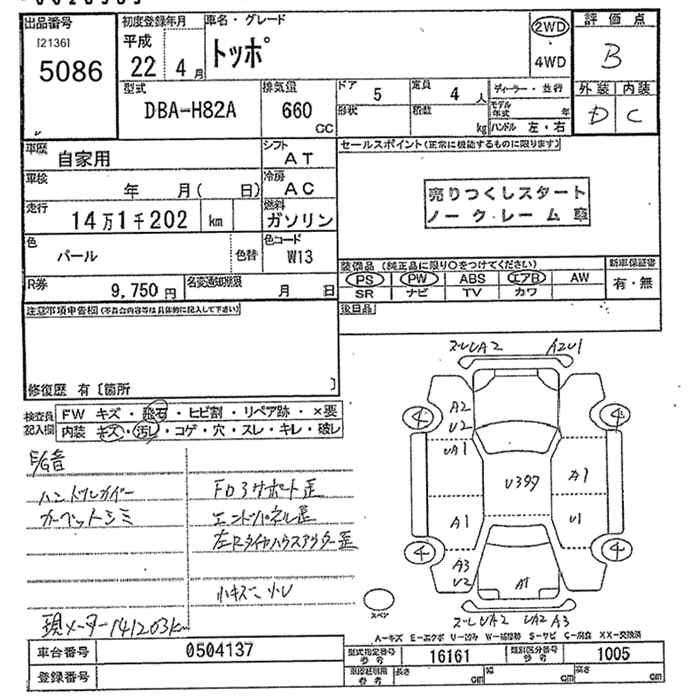 出品番号 初度登録年月 車名・グレード 2WD 評価点
[21361 平成 トッポ ・ B
5086 22 4月 4WD
型式 排気量 ドア 5 定員 4人 ディーラー・並行 外装 内装
DBA-H82A 660 CC 形状 積数 kg モデル年式 年 D C
ハンドル 左・右
車歴 自家用 シフト AT セールスポイント(正常に機能するものに限ります)
車検 年 月( 日) 冷房 AC
売りつくしスタート
走行 14万1千202 km 燃料 ガソリン ノークレーム車
色 パール 色替 色コード W13
装備品(純正品に限り○をつけてください) 新車保証書
R券 9,750円 名変通知期限 月 日 PS PW ABS エアB AW 有・無
SR ナビ TV カワ
注意事項申告欄(不具合内容等は具体的に記入して下さい) 後日品
修復歴 有〔箇所 〕
検査員 FW キズ・飛石・ヒビ割・リペア跡・×要
記入欄 内装 キズ・汚レ・コゲ・穴・スレ・キレ・破レ
ズレUA2 A2U1
A2
U2
UA1
4 4
U397 A1
A1 U1
4 4
A3
U2 A1
ズレUA2 UA2 A3
ハンドルカバー FD3サポート歪
カーペットシミ エンドパネル歪
左Rタイヤハウスアウター歪
小キズ 小U
現メーター141203km
スペア
A-キズ E-エクボ U-凹み W-補修跡 S-サビ C-腐食 XX-交換済
車台番号 0504137 型式指定番号 16161 類別区分番号 1005
参考 参考
登録番号 長さ cm 幅 cm 高さ cm